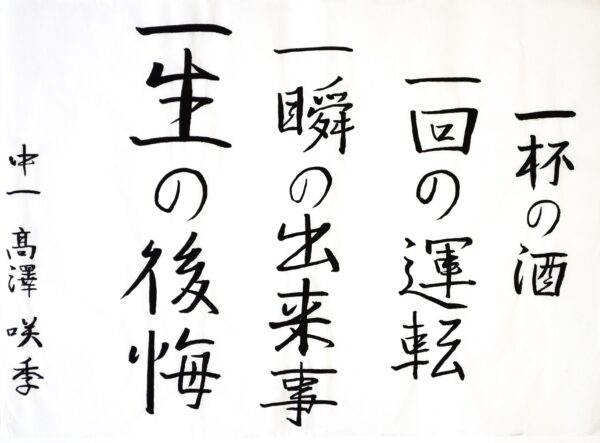 一杯の酒
一回の運転
一瞬の出来事
一生の後悔
中一 髙澤 咲季